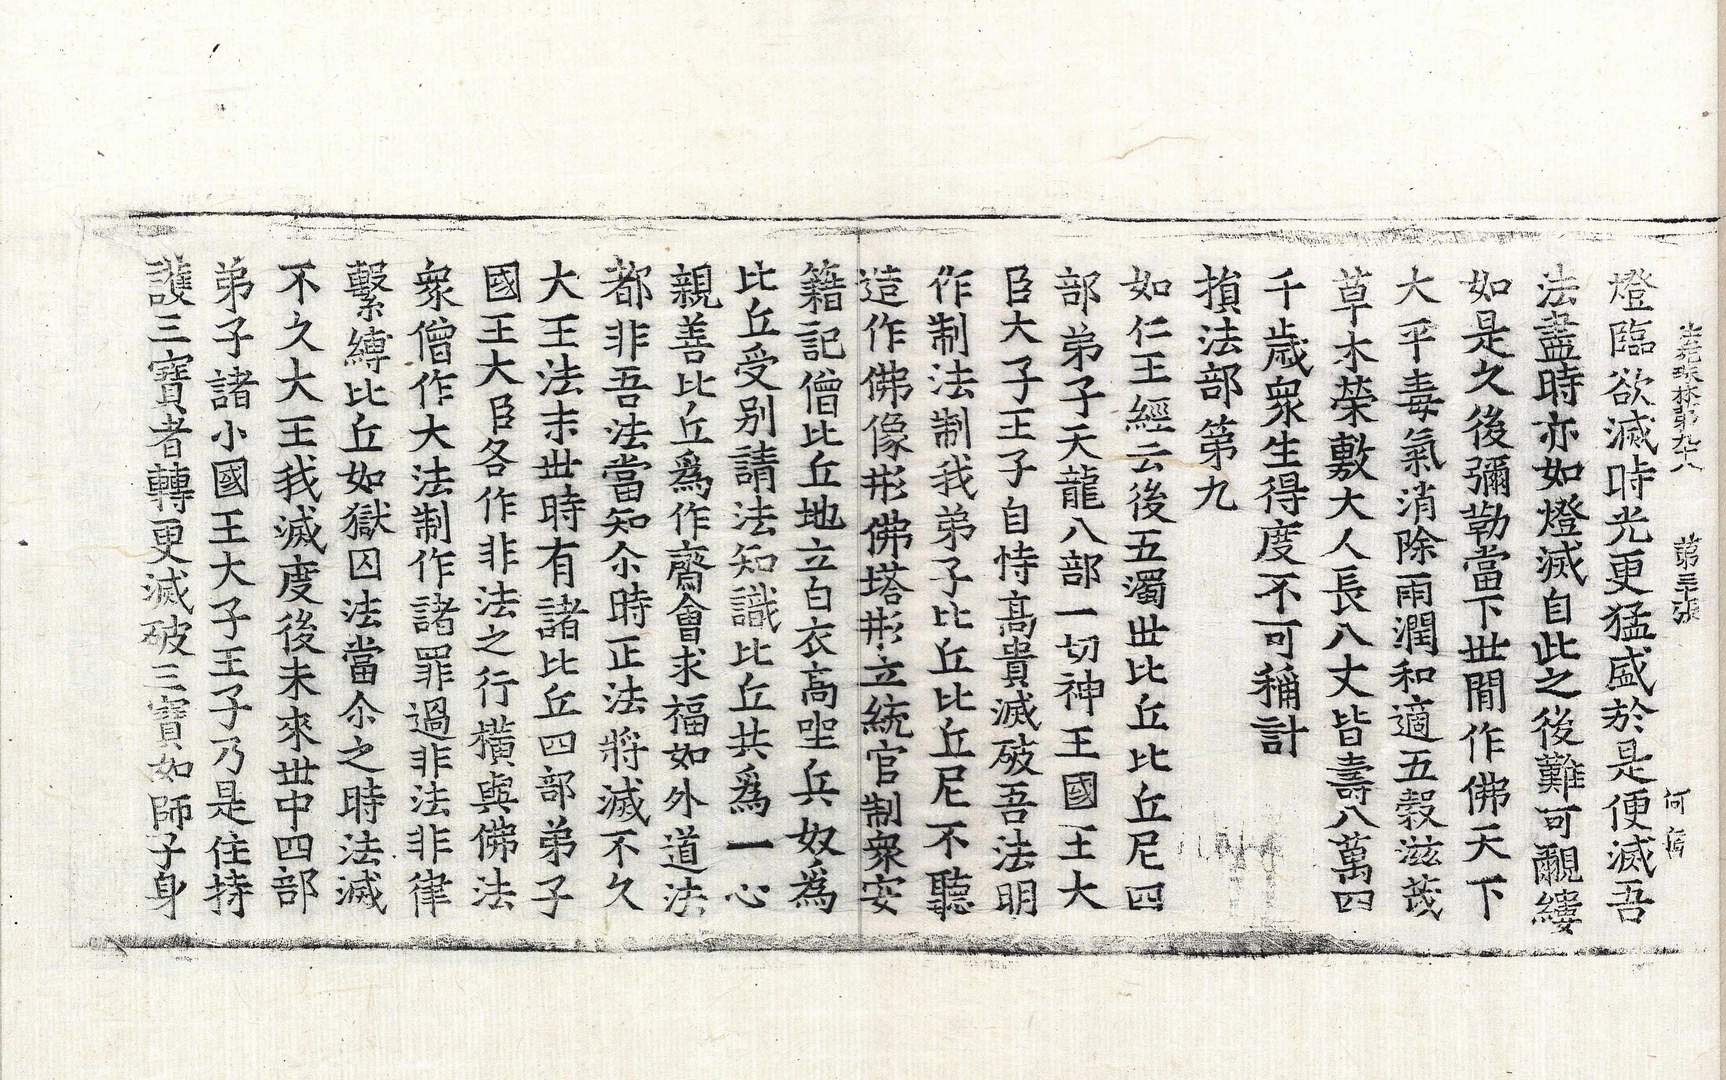 法苑珠林第九十八 第三十張 何
燈臨欲滅時光更猛盛於是便滅吾
法盡時亦如燈滅自此之後難可覼縷
如是久後彌勒當下世間作佛天下
大平毒氣消除雨潤和適五穀滋茂
草木榮敷大人長八丈皆壽八萬四
千歲衆生得度不可稱計
損法部第九
如仁王經云後五濁世比丘比丘尼四
部弟子天龍八部一切神王國王大
臣大子王子自恃高貴滅破吾法明
作制法制我弟子比丘比丘尼不聽
造作佛像形佛塔形立統官制衆安
籍記僧比丘地立白衣高㘴兵奴爲
比丘受别請法知識比丘共爲一心
親善比丘爲作齋會求福如外道法
都非吾法當知尒時正法將滅不久
大王法末世時有諸比丘四部弟子
國王大臣各作非法之行橫與佛法
衆僧作大法制作諸罪過非法非律
繫縛比丘如獄囚法當尒之時法滅
不久大王我滅度後未來世中四部
弟子諸小國王大子王子乃是住持
護三寶者轉更滅破三寶如師子身